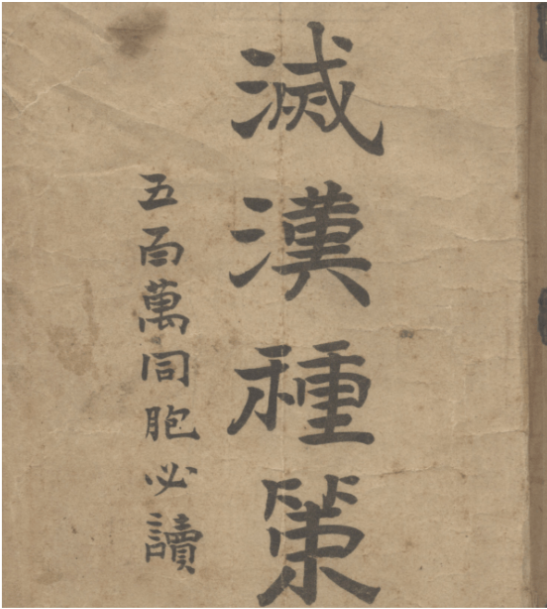 滅漢種策
五百萬同胞必讀